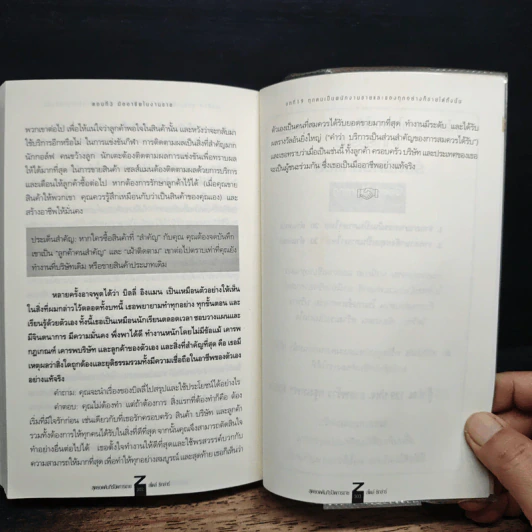 พวกเขาต่อไป เพื่อให้แน่ใจว่าลูกค้าพอใจในสินค้านั้น และหวังว่าจะกลับมา
ใช้บริการอีกหรือไม่ ในการแข่งขันกีฬา การติดตามผลเป็นสิ่งที่สำคัญมาก
นักกอล์ฟ คนขว้างลูก นักเตะต้องติดตามผลการแข่งขันเพื่อทราบผล
ให้ได้มากที่สุด ในการขายสินค้า เซลส์แมนต้องติดตามผลด้วยการบริการ
และเตือนให้ลูกค้าซื้อต่อไป หากต้องการรักษาลูกค้าไว้ได้ (เมื่อคุณขาย
สินค้าให้พวกเขา คุณควรรู้สึกเหมือนกับว่าเป็นสินค้าของคุณเอง) และ
สร้างอาชีพให้มั่นคง
ประเด็นสำคัญ: หากใครซื้อสินค้าที่ "สำคัญ" กับคุณ คุณต้องจดบันทึก
เขาเป็น "ลูกค้าคนสำคัญ" และ "เฝ้าติดตาม" เขาต่อไปตราบเท่าที่คุณยัง
ทำงานที่บริษัทเดิม หรือขายสินค้าประเภทเดิม
หลายครั้งอาจพูดได้ว่า บิลลี่ อิงแมน เป็นเหมือนตัวอย่างให้เห็น
ในสิ่งที่ผมกล่าวไว้ตลอดทั้งบทนี้ เธอพยายามทำทุกอย่าง ทุกขั้นตอน และ
เรียนรู้ด้วยตัวเอง ทั้งนี้เธอเป็นเหมือนนักเรียนตลอดเวลา ชอบวางแผนและ
มีจินตนาการ มีความมั่นคง พึ่งพาได้ดี ทำงานหนักโดยไม่มีข้อแม้ เคารพ
กฎเกณฑ์ เคารพบริษัท และลูกค้าของตัวเอง และสิ่งที่สำคัญที่สุด คือ เธอมี
เหตุผลว่าสิ่งใดถูกต้องและยุติธรรมรวมทั้งมีความเชื่อถือในอาชีพของตัวเอง
อย่างแท้จริง
คำถาม: คุณจะนำเรื่องของบิลลี่ไปสรุปและใช้ประโยชน์ได้อย่างไร
คำตอบ: คุณไม่ต้องทำ แต่ถ้าต้องการ สิ่งแรกที่ต้องทำก็คือ ต้อง
เริ่มที่มีใจรักก่อน เช่นเดียวกับที่เธอรักครอบครัว สินค้า บริษัท และลูกค้า
รวมทั้งต้องการให้ทุกคนได้รับในสิ่งที่ดีที่สุด จากนั้นคุณจึงสามารถตัดสินใจ
ทำอย่างอื่นต่อไปได้ เธอตั้งใจทำงานให้ดีที่สุดและใช้พรสวรรค์บวกกับ
ความสามารถให้มากที่สุด เพื่อทำให้ทุกอย่างสมบูรณ์ และสุดท้าย เธอก็เห็นว่า
ตัวเองเป็นคนที่สมควรได้รับยอดขายมากที่สุด ทำงานมีระดับ และได้รับ
ผลรางวัลอันยิ่งใหญ่ ("คำว่า บริการเป็นส่วนสำคัญของการสมควรได้รับ")
และเธอทราบว่าเมื่อเป็นเช่นนี้ ทั้งลูกค้า ครอบครัว บริษัท และประเทศของเธอ
จะเป็นผู้ชนะร่วมกัน ซึ่งเธอเป็นมืออาชีพอย่างแท้จริง